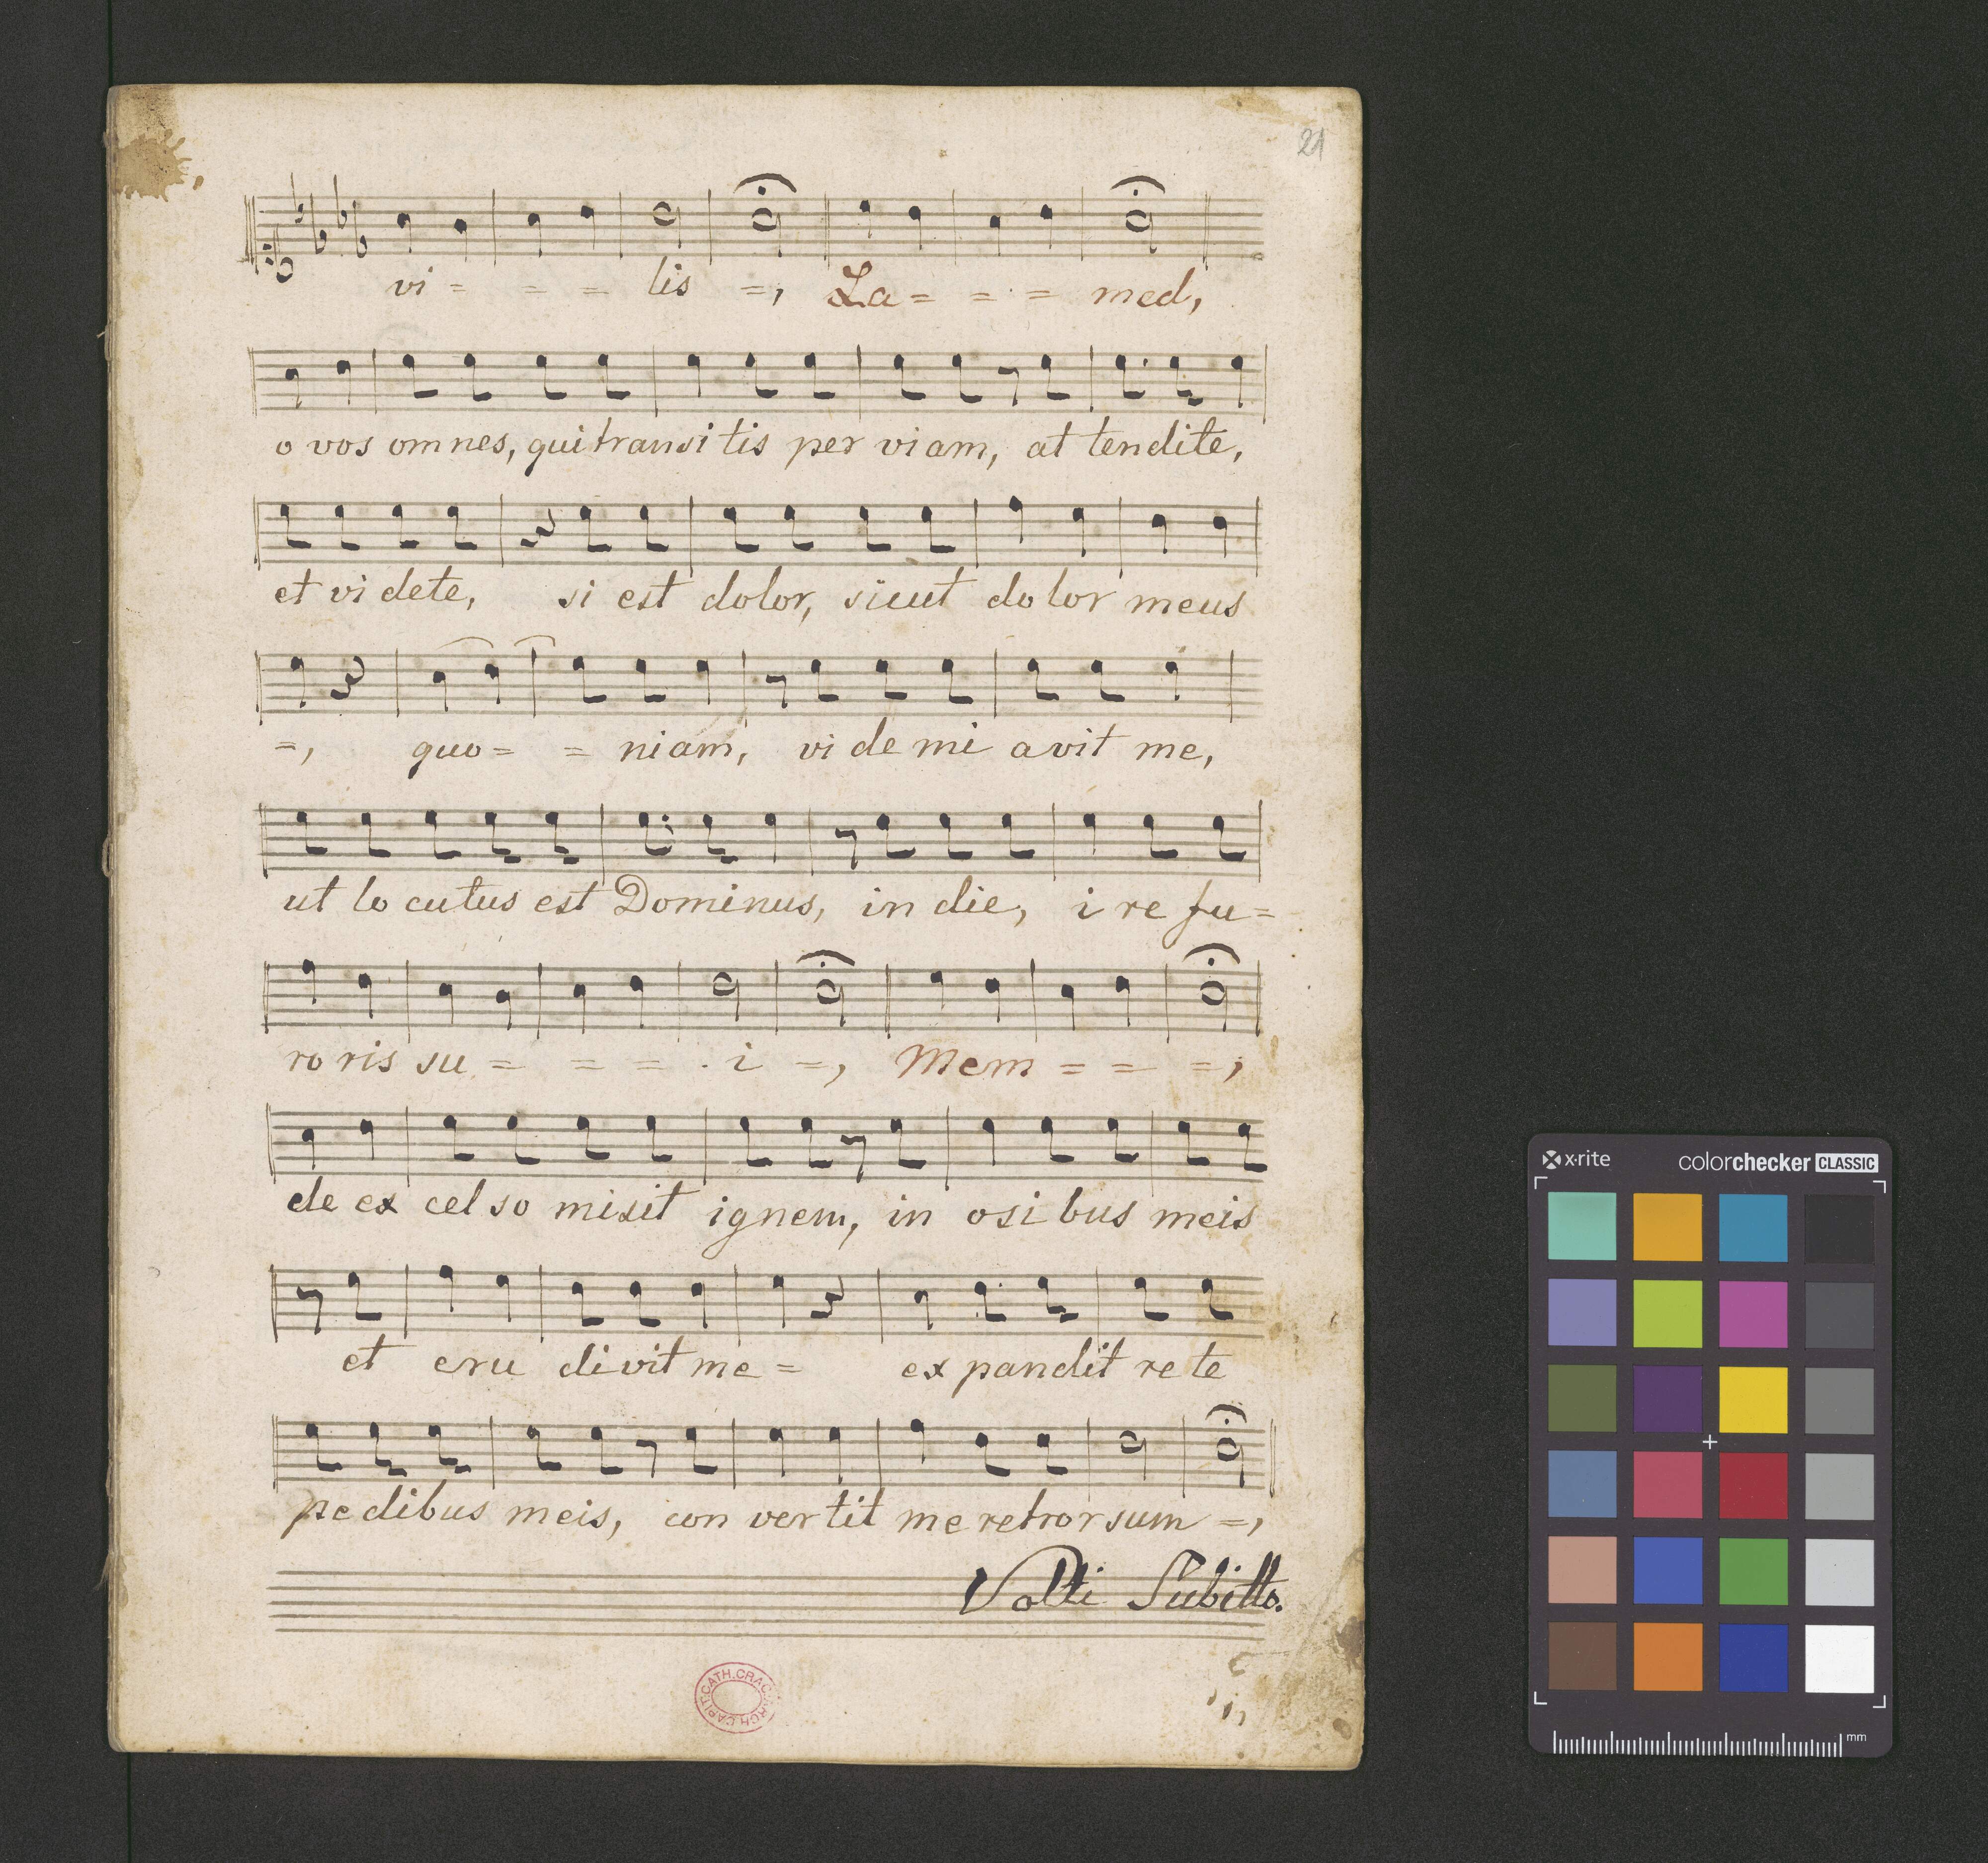 21
vi = = = lis =, La = = = med,
o vos omnes, qui transi tis per viam, at tendite,
et vi dete, si est dolor, sicut do lor meus
=, quo = = niam, vi de mi avit me,
ut lo cutus est Dominus, in die, i re fu =
ro ris su = = = i =, Mem = = =,
de ex cel so misit ignem, in osi bus meis
et eru di vit me = ex pandit re te
pe dibus meis, con ver tit me retror sum =,
Volti Subitto.
ARCH.CAPIT.CATH.CRAC.
x·rite colorchecker CLASSIC
mm